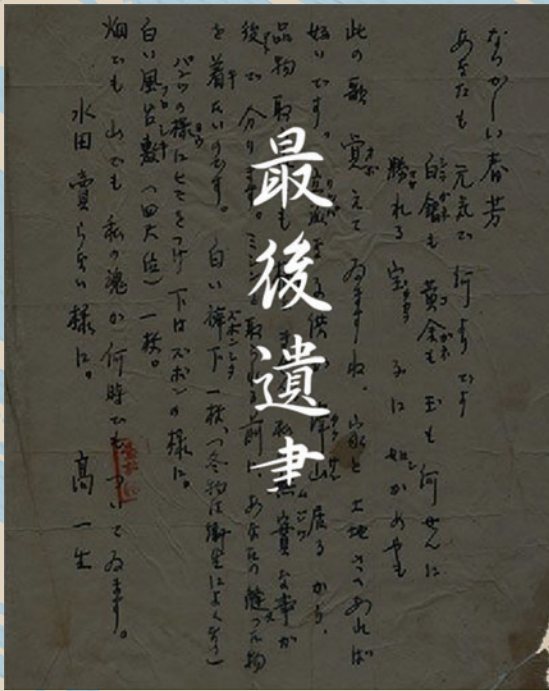 なつかしい春芳
あなたも 元気で 何よりです
白銀も 黄金も 玉も 何せんに
勝れる 宝 子に 如かめやも
此の歌 覚えて ゐますね。家と 土地さへあれば
好いです。立派な子供が 沢山居るから、
品物取 も 無實な事が
後で 分ります。ミシン 取られる前に、あなたの縫つた物
を着たいのです。白い袴下一枚、(冬物は衛生によくない)
パンツの様にヒモをつけ下はズボンの様に。
白い風呂敷(四尺位)一枚。
畑でも 山でも 私の魂が何時でもついてゐます。
水田賣らない様に。
高一生
最後遺書